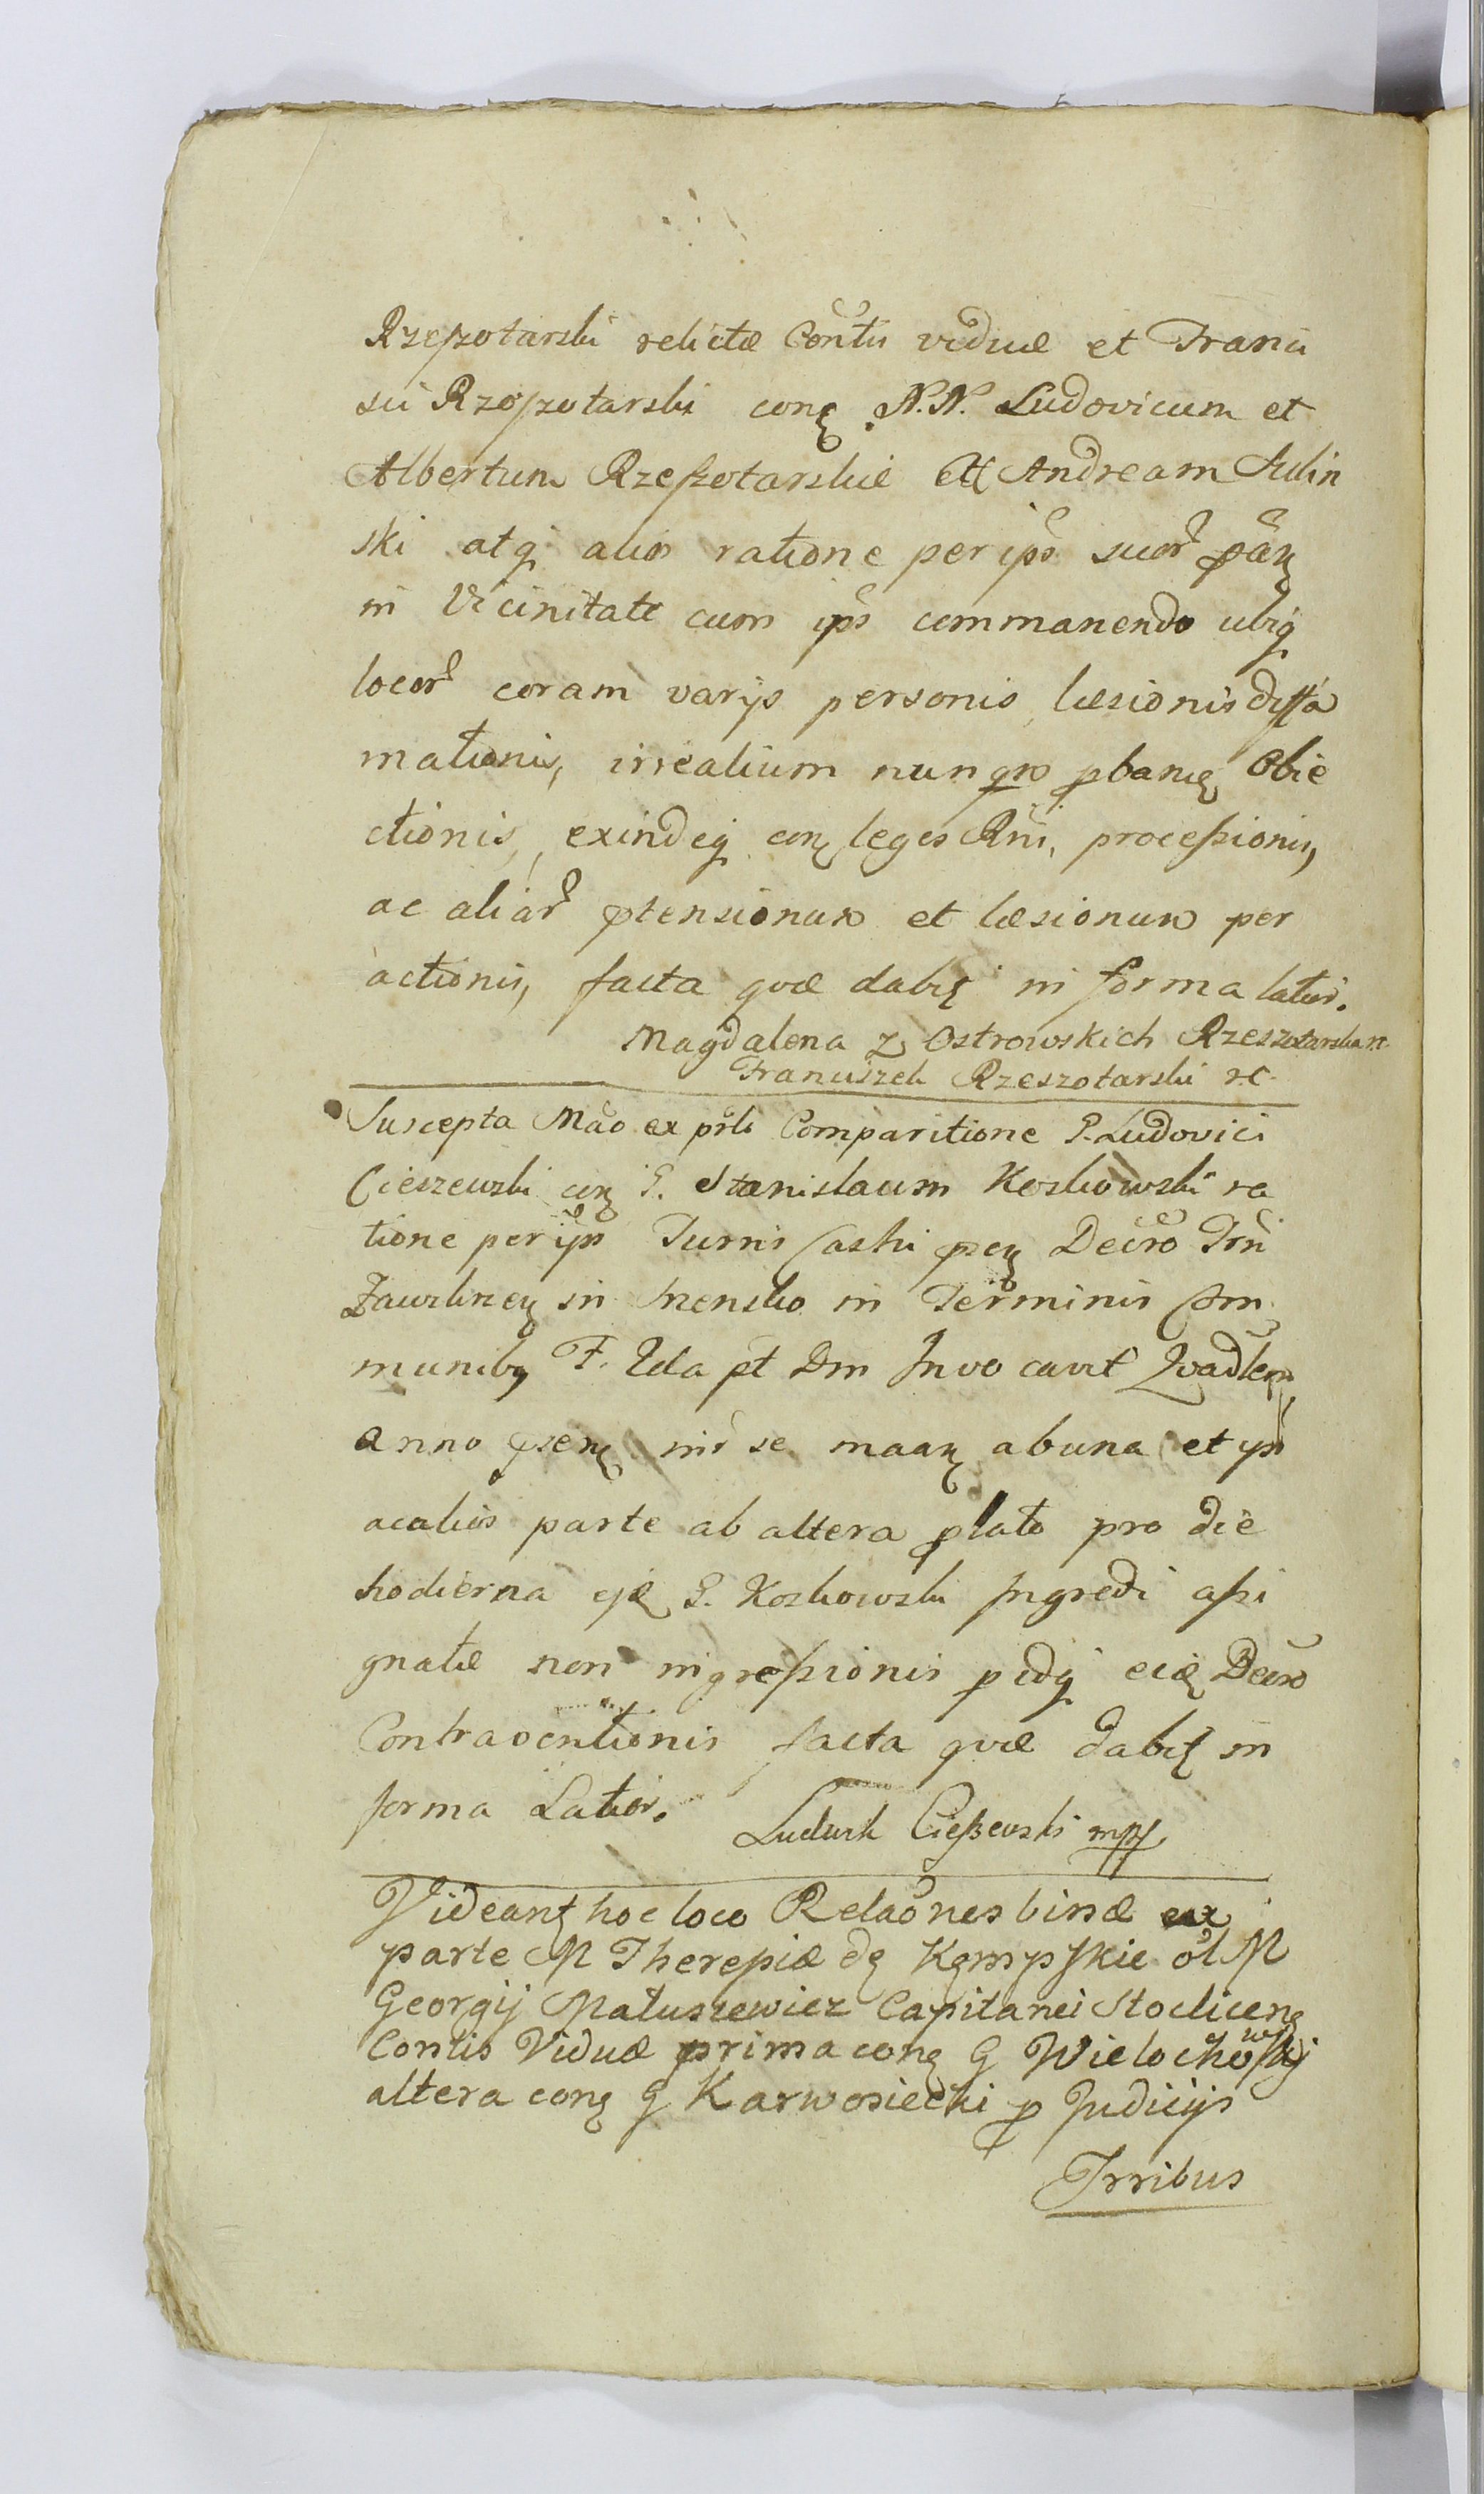 Rzeszotarski relictæ Contis viduæ et Franci
sci Rzeszotarski con N.N. Ludovicum et
Albertum Rzeszotarskie et Andream
ski atq alios ratione per ips suor
in Vicinitate cum ips commanendo ubiq
locor coram varijs personis læsionis diffa
mationis, irrealium nunqm pbanę Obie
ctionis, exindeq con leges Rni, processionis,
ac aliar ptensionum et læsionum per
actionis, facta quæ dabit in forma latior.
Magdalena z Ostrowskich Rzeszotarska
Franciszek Rzeszotarski
Suscepta Mão ex prli Comparitione G. Ludovici
Cieszewski con G. Stanislaum Koskowski ra
tione per ips Turris Castri Decro
Zawkrzen in in Terminis Com
munibq F. 2da pt Dm Invocavit Qvadlem
anno psen int se ab una et ips
ac alios parte ab altera plato pro die
hodierna G. Koskowski Ingredi assi
gnatæ non ingressionis pidq Decro
Contraventionis facta quæ dabit in
forma Latior. Ludwik Cieszewski mpp
Videant hoc loco Relaones binæ ex
parte M Theresiæ de Kęmpskie ol M
Georgij Matuszewicz Capitanei Stocliceng
Contis Viduæ prima con G Wielochowskij
altera con G Karwosiecki p Judicijs
Trribus